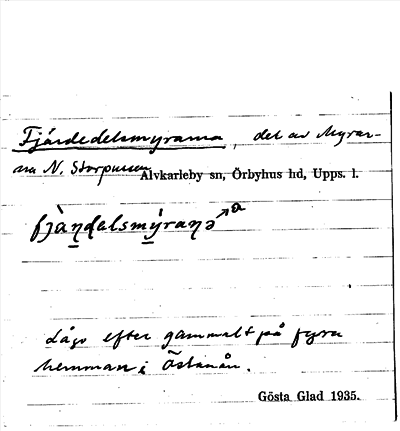 Fjärdedelsmyrarna, del av Myrar-
na N. Storpussen
Älvkarleby sn, Örbyhus hd, Upps. l.
fjànḍalsmýraṇə ↗a
Lågo efter gammalt på fyra
hemman i Östanån.
Gösta Glad 1935.